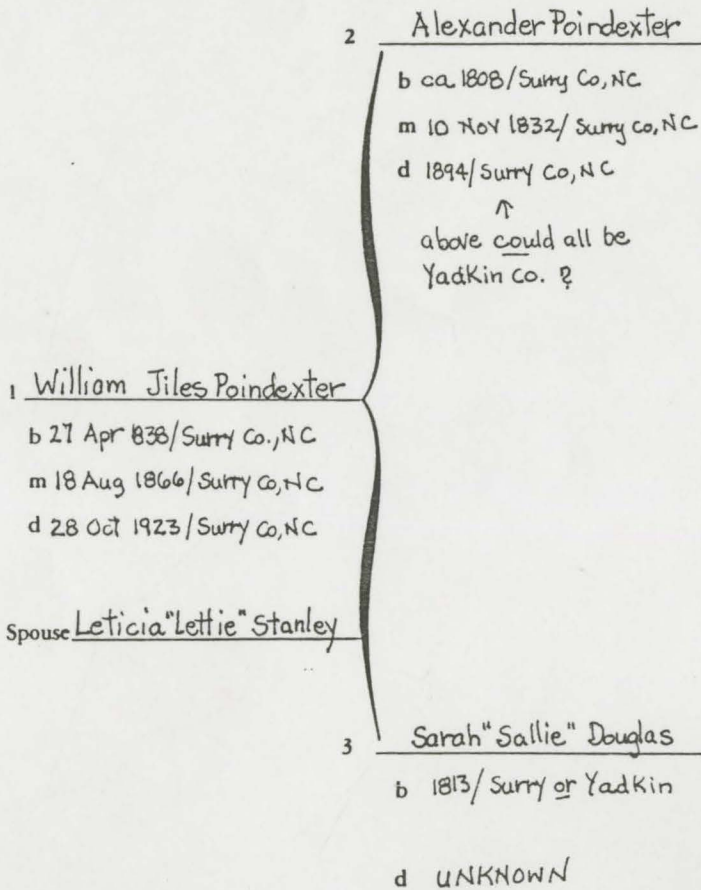 2 Alexander Poindexter
b ca 1808/Surry Co, NC
m 10 Nov 1832/Surry Co, NC
d 1894/Surry Co, NC
↑
above could all be
Yadkin Co. ?
1 William Jiles Poindexter
b 27 Apr 838/Surry Co., NC
m 18 Aug 1866/Surry Co, NC
d 28 Oct 1923/Surry Co, NC
Spouse Leticia "Lettie" Stanley
3 Sarah "Sallie" Douglas
b 1813/Surry or Yadkin
d UNKNOWN